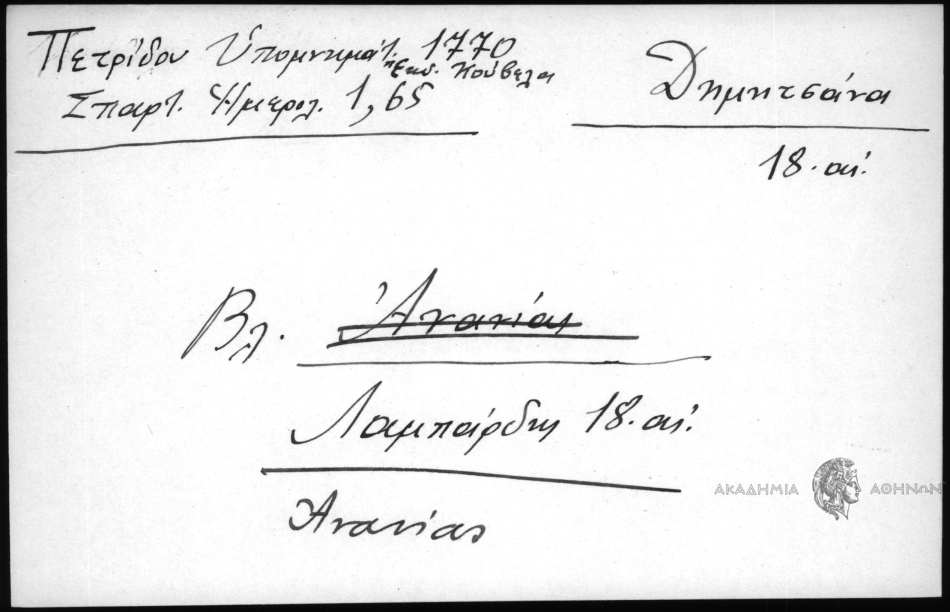 Πετρίδου Ὑπομνημάτ. 1770
Ἔκδ. Κούβελα
Σπαρτ. Ἡμερολ. 1, 65
Δημητσάνα
18. αἰ.
Βλ. Ἀνανίας
Λαμπάρδης 18. αἰ.
Ἀνανίας
ΑΚΑΔΗΜΙΑ ΑΘΗΝΩΝ